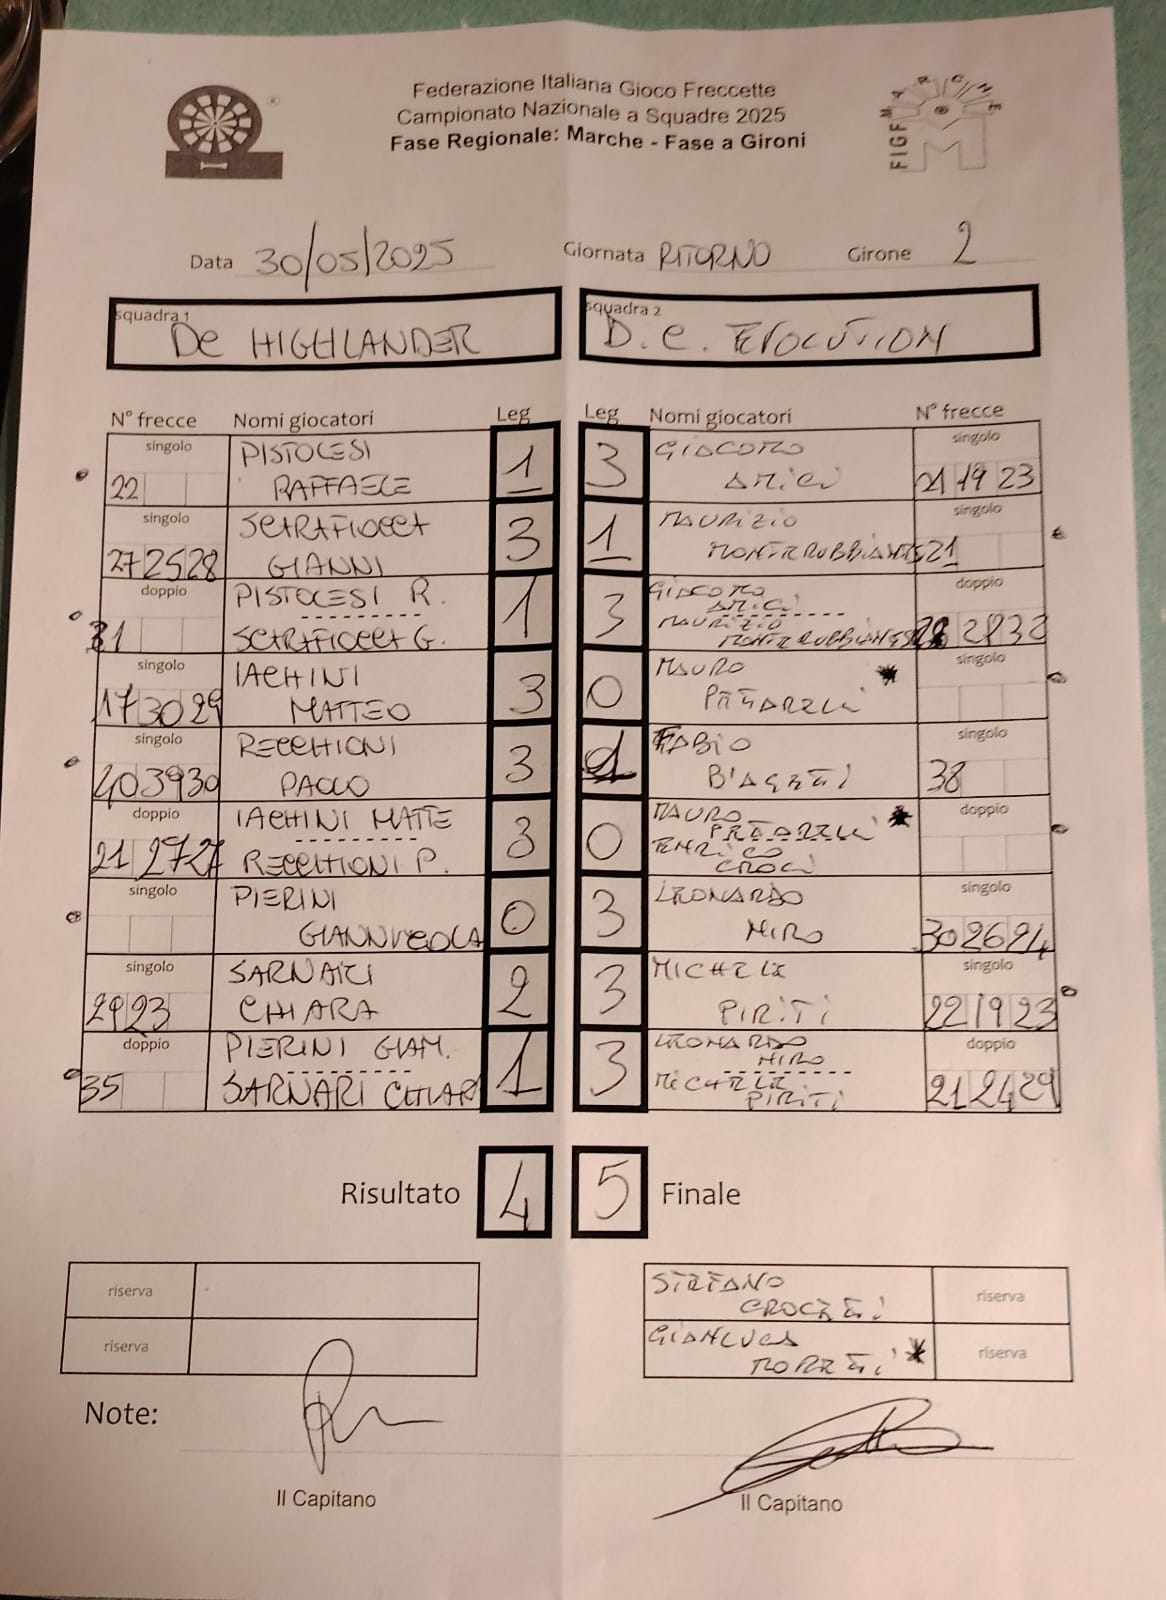 Federazione Italiana Gioco Freccette
Campionato Nazionale a Squadre 2025
Fase Regionale: Marche - Fase a Gironi
FIGF MARCHE
Data 30/05/2025 Giornata RITORNO Girone 2
squadra 1 De HIGHLANDER
squadra 2 D.e. EVOLUTION
N° frecce Nomi giocatori Leg Leg Nomi giocatori N° frecce
singolo PISTOLESI 1 3 GIACOMO singolo
22 RAFFAELE AMICI 21 19 23
singolo SCIARAFIOCCA 3 1 MAURIZIO singolo
27 25 28 GIANNI MONTERUBBIANESI 21
doppio PISTOLESI R. 1 3 GIACOMO AMICI doppio
31 SCIARAFIOCCA G. MAURIZIO MONTERUBBIANESI 28 28 32
singolo IACHINI 3 0 MAURO * singolo
17 30 29 MATTEO
singolo RECCHIONI 3 1 FABIO singolo
40 39 30 PAOLO BIAGETTI 38
doppio IACHINI MATTE 3 0 MAURO * doppio
21 27 27 RECCHIONI P. ENRICO CROCI
singolo PIERINI 0 3 LEONARDO singolo
GIANNICOLA MIRO 30 26 24
singolo SARNARI 2 3 MICHELE singolo
29 23 CHIARA PIRITI 22 19 23
doppio PIERINI GIAM. 1 3 LEONARDO MIRO doppio
35 SARNARI CHIAR MICHELE PIRITI 21 24 29
Risultato 4 5 Finale
riserva STEFANO CROCETTI riserva
riserva GIANLUCA MORETTI * riserva
Note:
Il Capitano Il Capitano